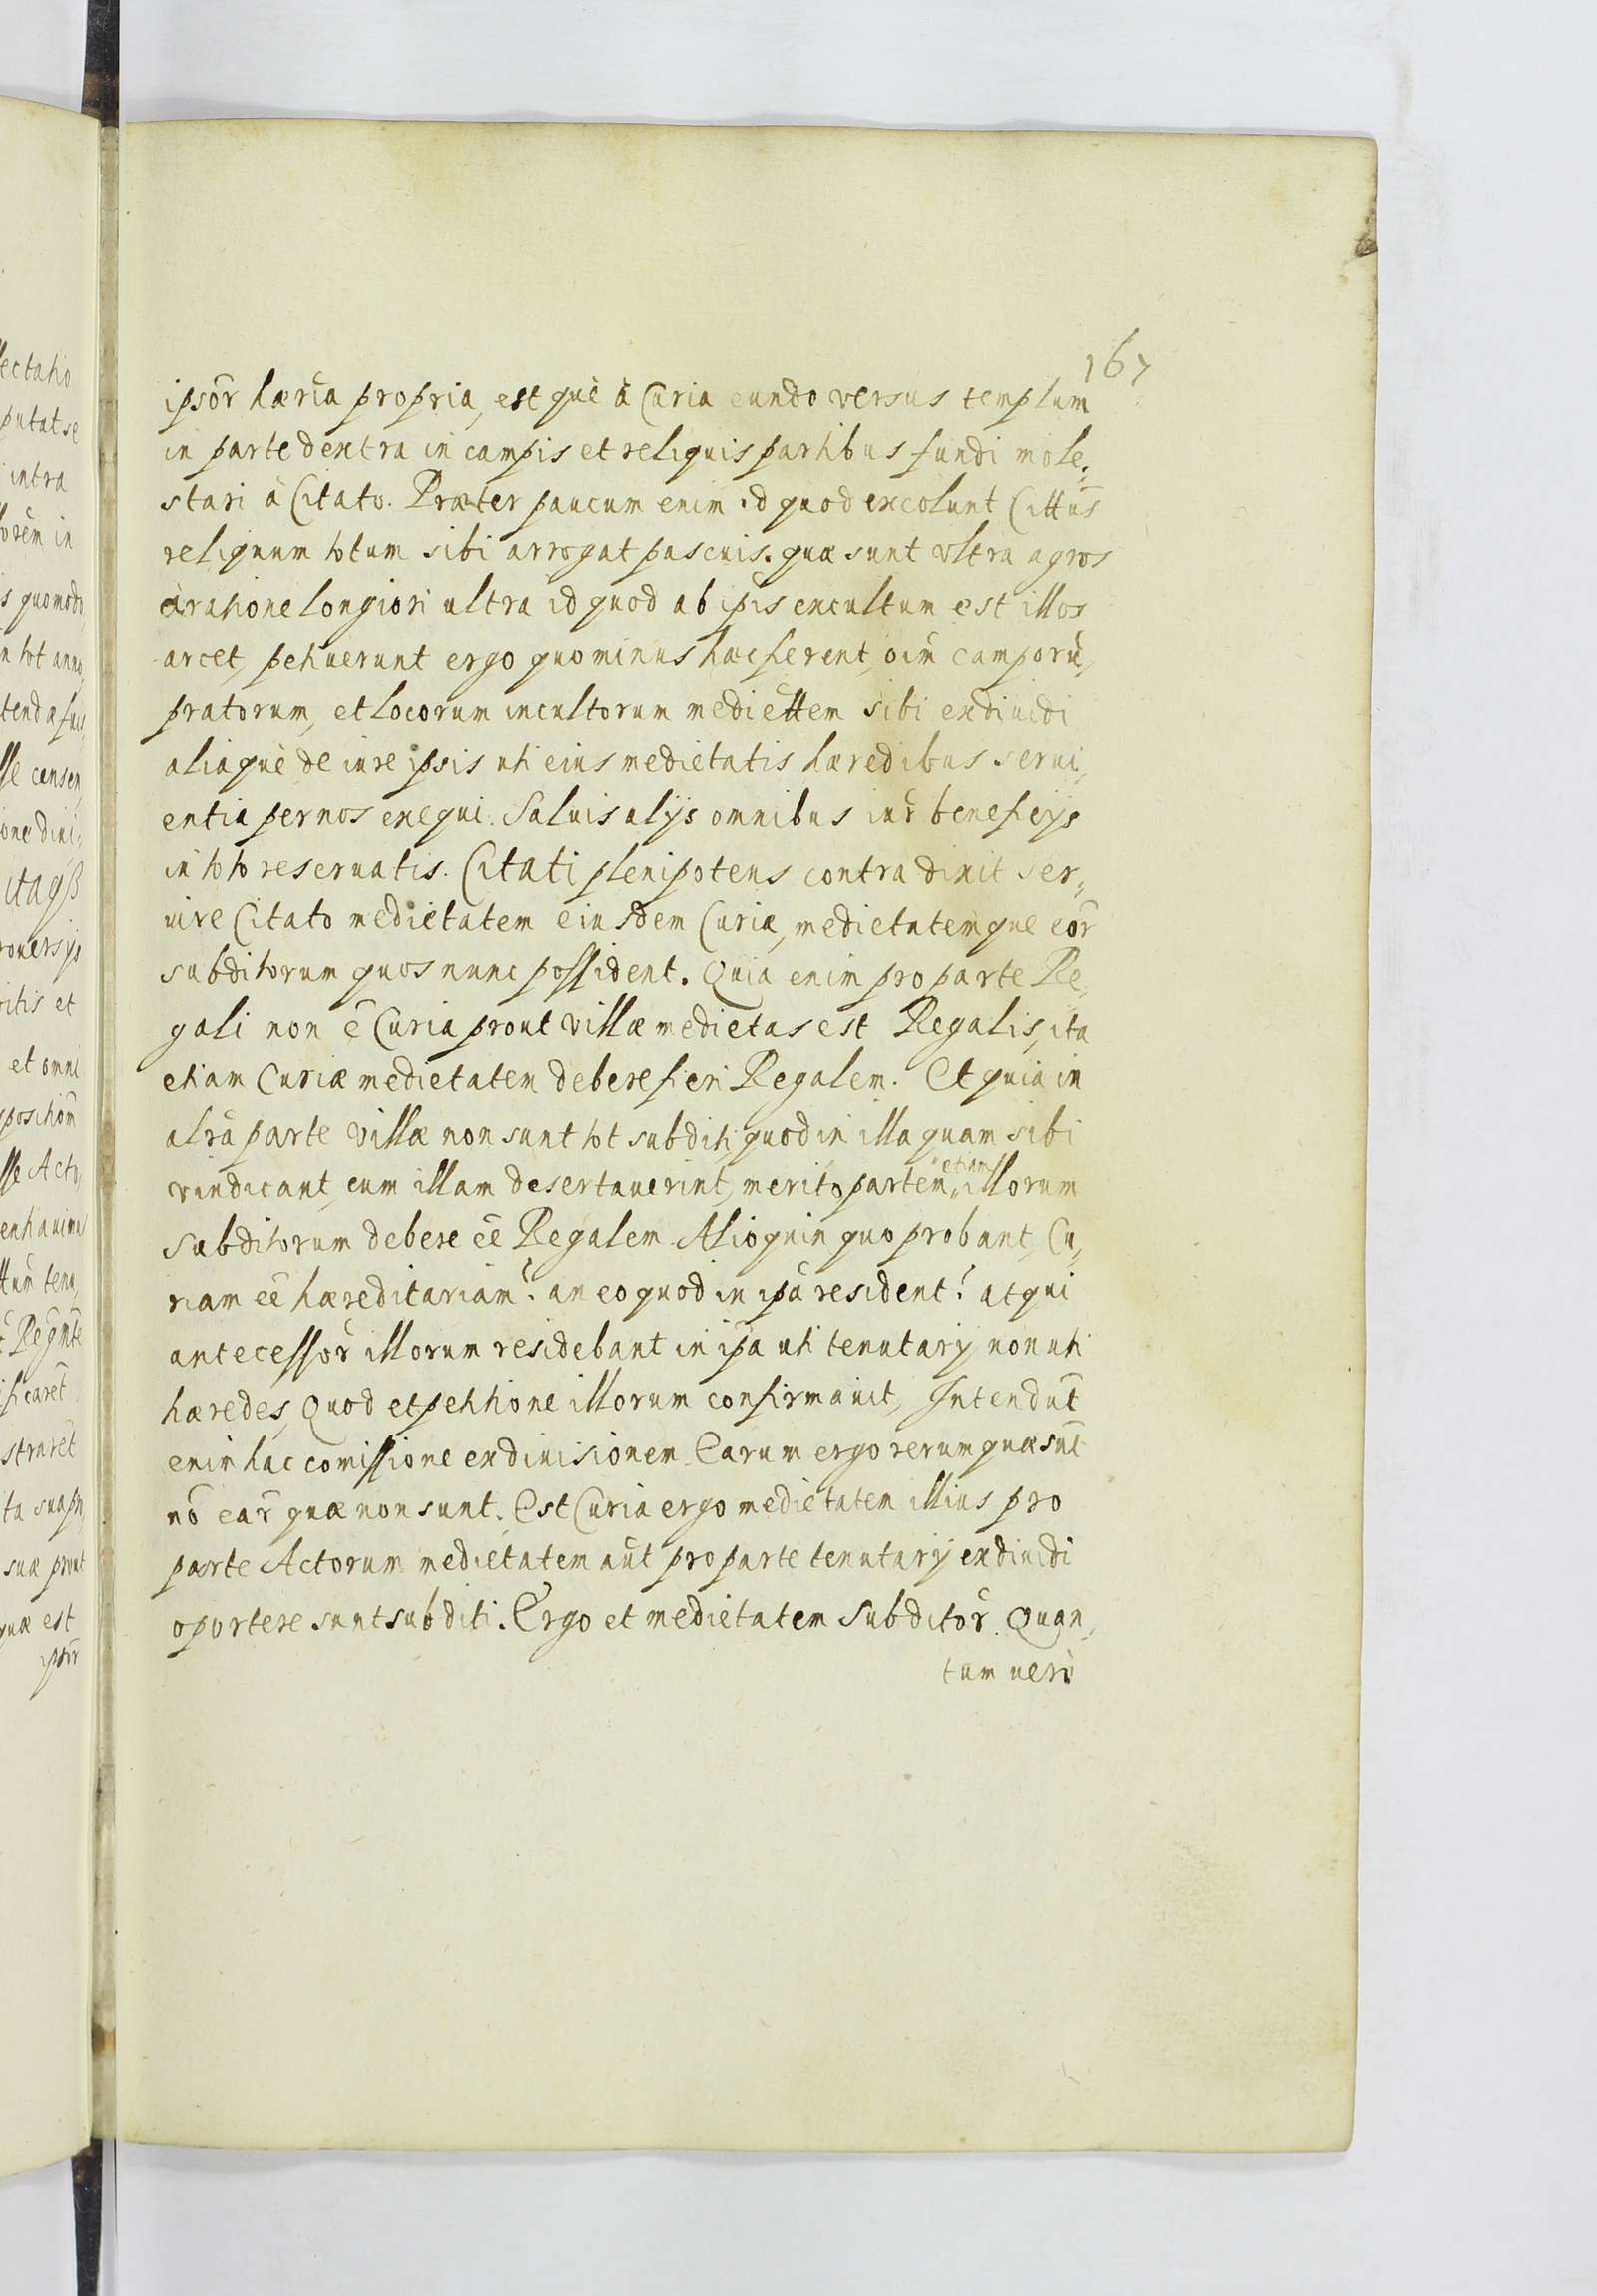 167
ipsōr hæria propria, est què à Curia eundo versus templum
in parte dextra in campis et reliquis partibus fundi mole=
stari à Citato. Præter paucum enim id quod excolunt Cittus
reliquum totum sibi arrogat pascuis. quæ sunt ultra agros
aratione longiori ultra id quod ab ipis excultum est illos
arcet, petiuerunt ergo quominus hæc fierent, oīm camporū,
pratorum, et locorum incultorum mediettem sibi exdiuidi
aliaquè de iure ipsis uti eius medietatis hæredibus serui,
entia per nos exequi. Saluis alijs omnibus iur beneficijs
in toto reseruatis. Citati plenipotens contra dixit ser=
uire Citato medietatem eiusdem Curiæ, medietatemque eōr
subditorum quos nunc possident. Quia enim pro parte Re,
gali non ē Curia prout villæ medietas est Regalis, ita
etiam Curiæ medietatem debere fieri Regalem. Et quia in
alrā parte villæ non sunt tot subditi, quod in illa quam sibi
vindicant, cum illam desertauerint, merito partem etiam illorum
subditorum debere ēē Regalem. Alioquin quo probant, Cu,
riam ēē hæreditariam? an eo quod in ipā resident? atqui
antecessōr illorum residebant in ipa uti tenutarij non uti
hæredes, Quod et petitione illorum confirmauit, Intendūt
enim hac comissione exdiuisionem. Earum ergo rerum quæ sūt
nō eār quæ non sunt. Est Curia ergo medietatem illius pro
parte Actorum medietatem aūt pro parte tenutarij exdiuidi
oportere sunt subditi. Ergo et medietatem Subditōr. Quan,
tum uerò
lectatio
putat se
intra
lorēm in
s quomodo,
n tot anno,
itagß
rouersijs
ritis et
et omni
sse Acto,
Regnte
strarēt
suæ prout
quæ est
ipsōr